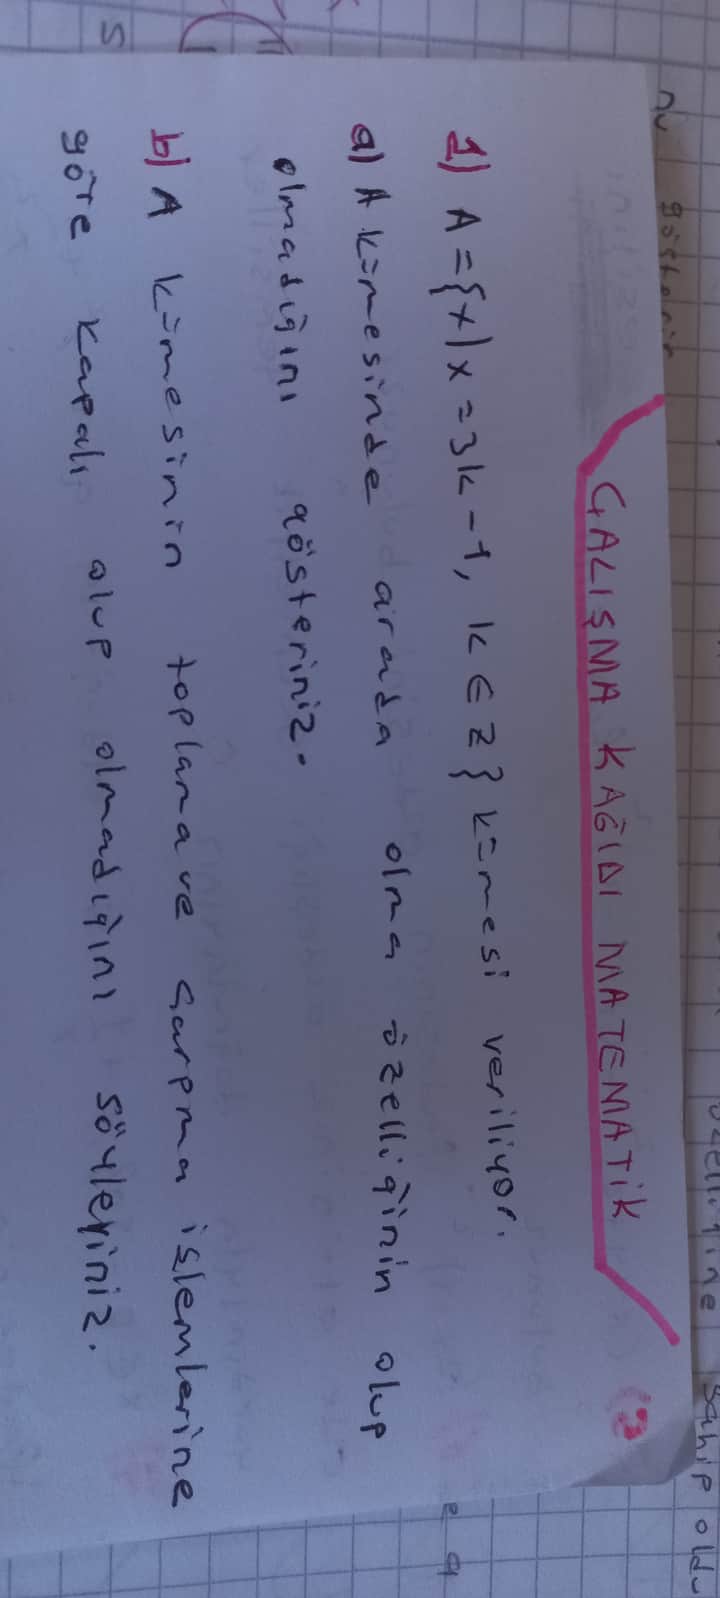 ÇALIŞMA KAĞIDI MATEMATİK
1) A = {x | x = 3k - 1, k ∈ Z} kümesi veriliyor.
a) A kümesinde arada olma özelliğinin olup
olmadığını gösteriniz.
b) A kümesinin toplama ve çarpma işlemlerine
göre kapalı olup olmadığını söyleyiniz.
sahip oldu